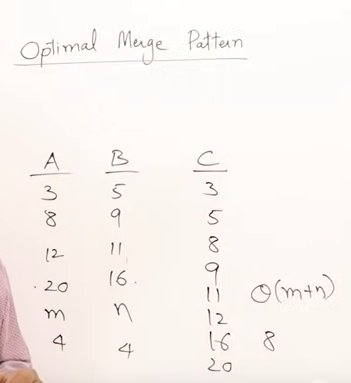 Optimal Merge Pattern
A B C
3 5 3
8 9 5
12 11 8
20 16 9
m n 11 Θ(m+n)
4 4 12
16 8
20